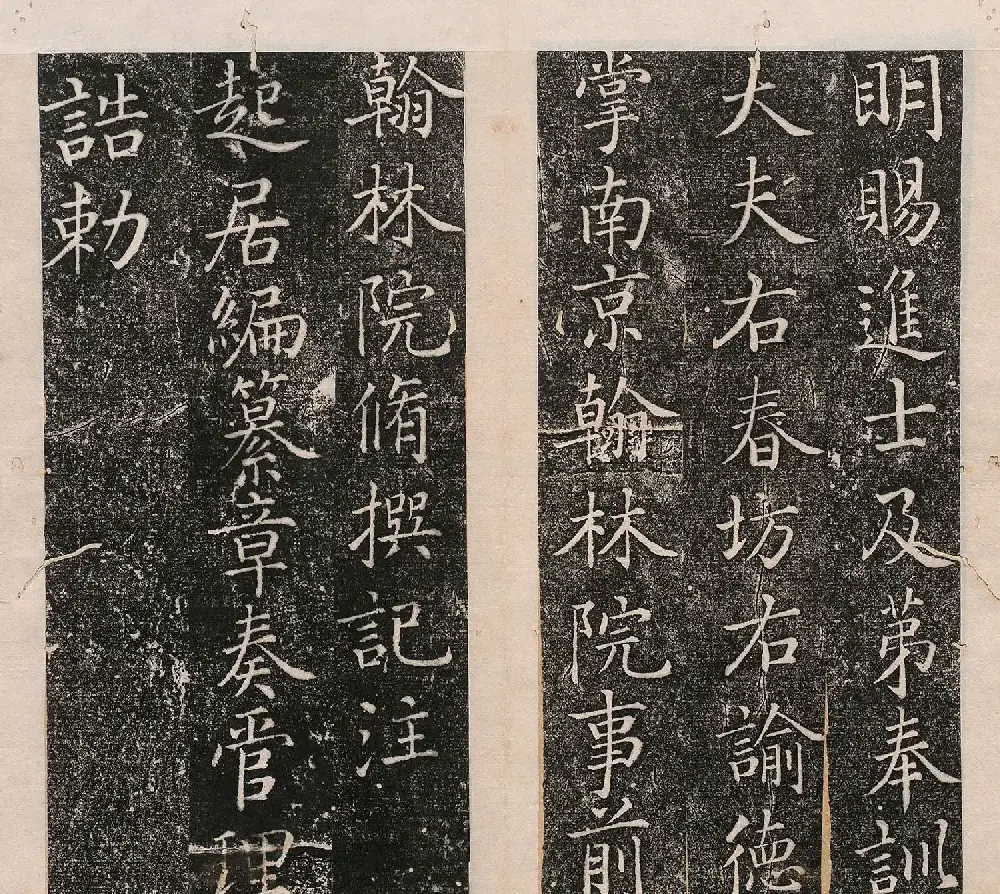 明賜進士及苐奉訓
大夫右春坊右諭德
掌南京翰林院事前
翰林院脩撰記注
起居編纂章奏管理
誥勅